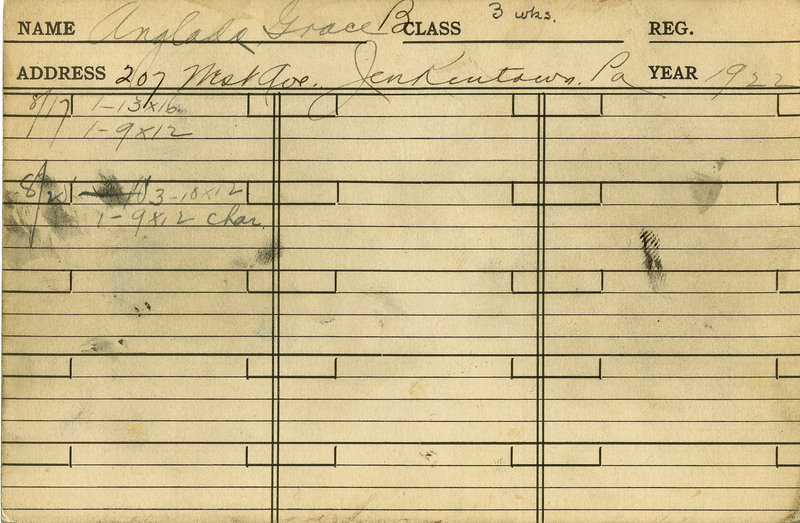 NAME Anglada, Grace B CLASS 3 wks. REG.
ADDRESS 207 West Ave. Jenkintown. Pa YEAR 1922
8/17 1-13x16
1-9x12
8/25 3-10x12
1-9x12 char.